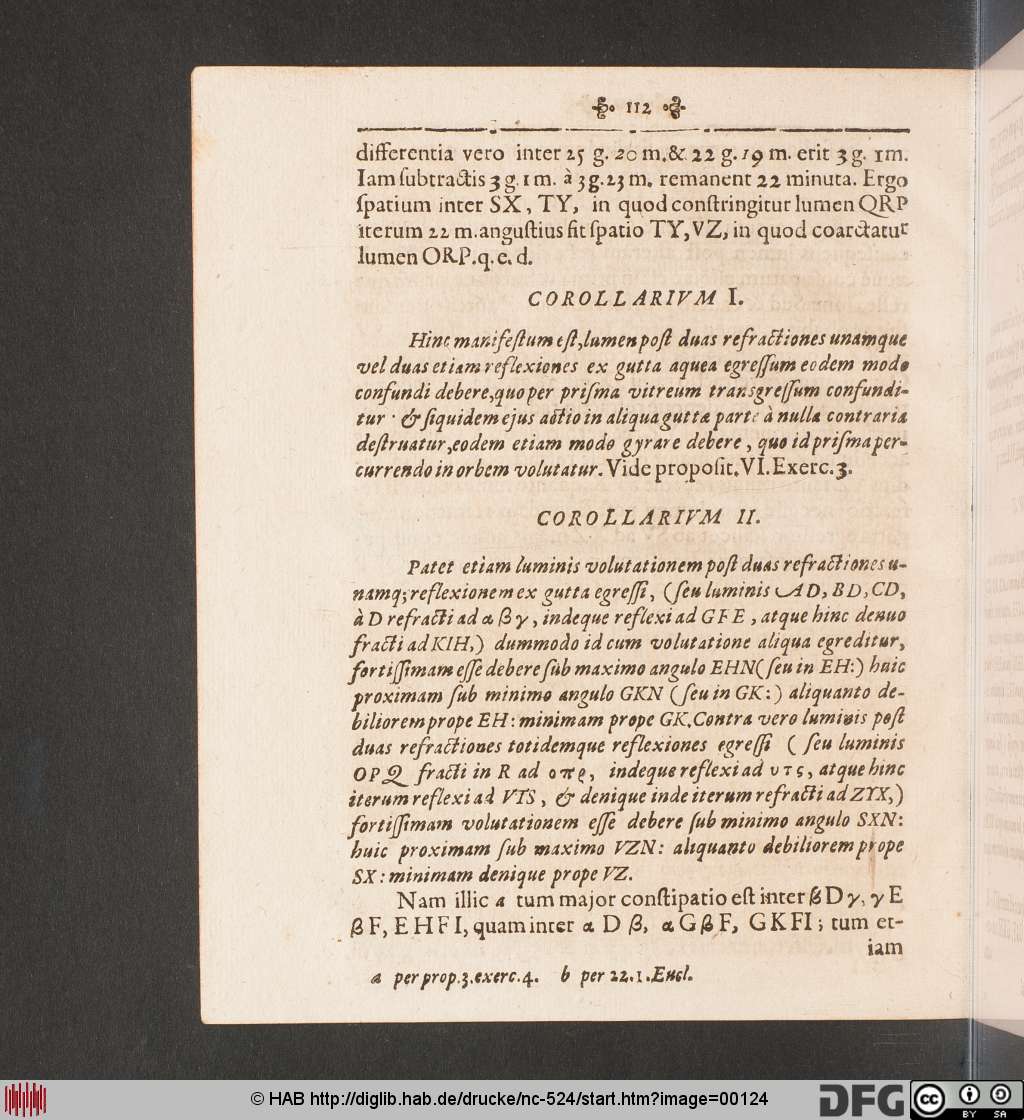 112
differentia vero inter 25 g. 20 m. & 22 g. 19 m. erit 3 g. 1m.
Iam ſubtractis 3 g. 1 m. à 3 g. 23 m. remanent 22 minuta. Ergo
ſpatium inter SX, TY, in quod conſtringitur lumen QRP
iterum 22 m. anguſtius fit ſpatio TY, VZ, in quod coarctatur
lumen ORP. q. e. d.
COROLLARIVM I.
Hinc manifeſtum eſt, lumen poſt duas refractiones unamque
vel duas etiam reflexiones ex gutta aquea egreſſum eodem modo
confundi debere, quo per priſma vitreum transgreſſum confundi-
tur · & ſiquidem ejus actio in aliqua guttæ parte à nulla contraria
deſtruatur, eodem etiam modo gyrare debere, quo id priſma per-
currendo in orbem volutatur. Vide propoſit. VI. Exerc. 3.
COROLLARIVM II.
Patet etiam luminis volutationem poſt duas refractiones u-
namq; reflexionem ex gutta egreſſi, (ſeu luminis AD, BD, CD,
à D refracti ad α β γ, indeque reflexi ad GFE, atque hinc denuo
fracti ad KIH,) dummodo id cum volutatione aliqua egreditur,
fortiſſimam eſſe debere ſub maximo angulo EHN (ſeu in EH:) huic
proximam ſub minimo angulo GKN (ſeu in GK:) aliquanto de-
biliorem prope EH: minimam prope GK. Contra vero luminis poſt
duas refractiones totidemque reflexiones egreſſi (ſeu luminis
OPQ fracti in R ad ο π ρ, indeque reflexi ad υ τ ς, atque hinc
iterum reflexi ad VTS, & denique inde iterum refracti ad ZYX,)
fortiſſimam volutationem eſſe debere ſub minimo angulo SXN:
huic proximam ſub maximo VZN: aliquanto debiliorem prope
SX: minimam denique prope VZ.
Nam illic a tum major conſtipatio eſt inter β D γ, γ E
β F, E H F I, quam inter α D β, α G β F, G K F I; tum et-
iam
a per prop. 3. exerc. 4. b per 22. 1. Eucl.
© HAB http://diglib.hab.de/drucke/nc-524/start.htm?image=00124
DFG
cc
BY SA